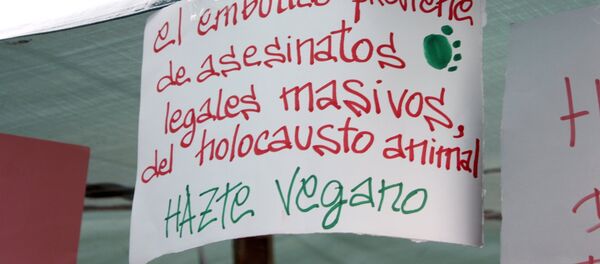 el embutido proviene
de asesinatos
legales masivos,
del holocausto animal
HAZte vegano